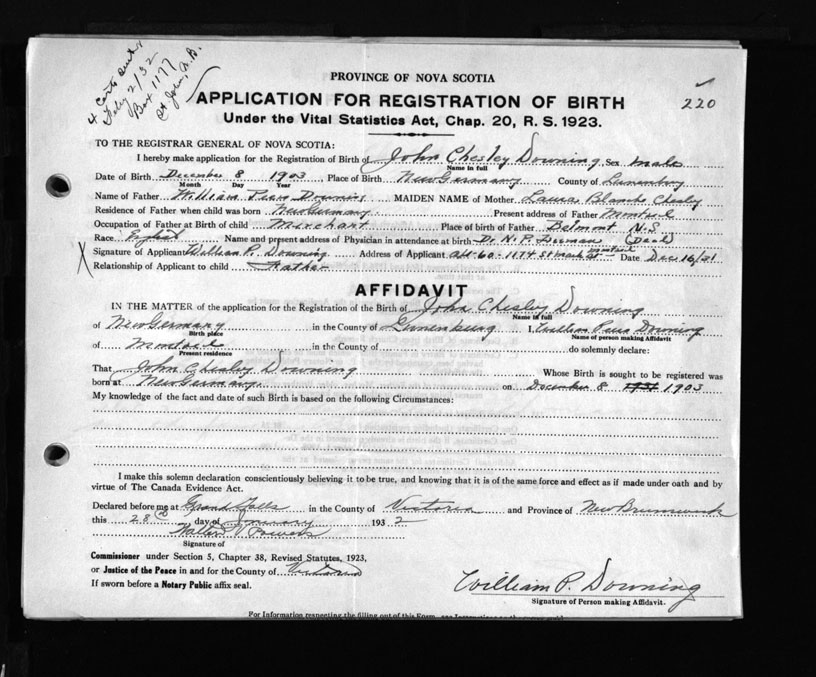 4 Certs sent
Feby 2/32
Box 1177
St John, N.B.
220
PROVINCE OF NOVA SCOTIA
APPLICATION FOR REGISTRATION OF BIRTH
Under the Vital Statistics Act, Chap. 20, R. S. 1923.
TO THE REGISTRAR GENERAL OF NOVA SCOTIA:
I hereby make application for the Registration of Birth of John Chesley Downing Sex male
Name in full
Date of Birth December 8 1903 Place of Birth New Germany County of Lunenburg
Month Day Year
Name of Father William Peers Downing MAIDEN NAME of Mother Laura Blanche Chesley
Residence of Father when child was born New Germany Present address of Father Montreal
Occupation of Father at Birth of child Merchant Place of birth of Father Belmont N.S.
Race English Name and present address of Physician in attendance at birth Dr. N. P. Freeman (Dead)
X Signature of Applicant William P. Downing Address of Applicant apt-60-1174 St Mark St Montreal Date Dec 16/31
Relationship of Applicant to child Father
AFFIDAVIT
IN THE MATTER of the application for the Registration of the Birth of John Chesley Downing
Name in full
of New Germany in the County of Lunenburg I, William Peers Downing
Birth place Name of person making Affidavit
of Montreal in the County of do solemnly declare:
Present residence
That John Chesley Downing Whose Birth is sought to be registered was
born at New Germany. on December 8 1931 1903
My knowledge of the fact and date of such Birth is based on the following Circumstances:
I make this solemn declaration conscientiously believing it to be true, and knowing that it is of the same force and effect as if made under oath and by
virtue of The Canada Evidence Act.
Declared before me at Grand Falls in the County of Victoria and Province of New Brunswick
this 28 day of January 1932
Walter J Powers
Signature of
Commissioner under Section 5, Chapter 38, Revised Statutes, 1923,
or Justice of the Peace in and for the County of Victoria
If sworn before a Notary Public affix seal.
William P. Downing
Signature of Person making Affidavit.
For Information respecting the filling out of this Form, see Instructions